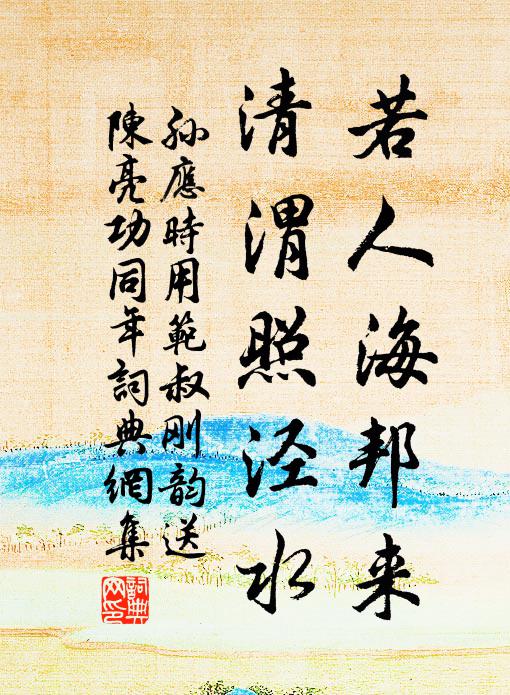 若人海邦来
清渭照泾水
孙應時用範叔刚韵送
陳亮功同年詞典網集
詞典
网印